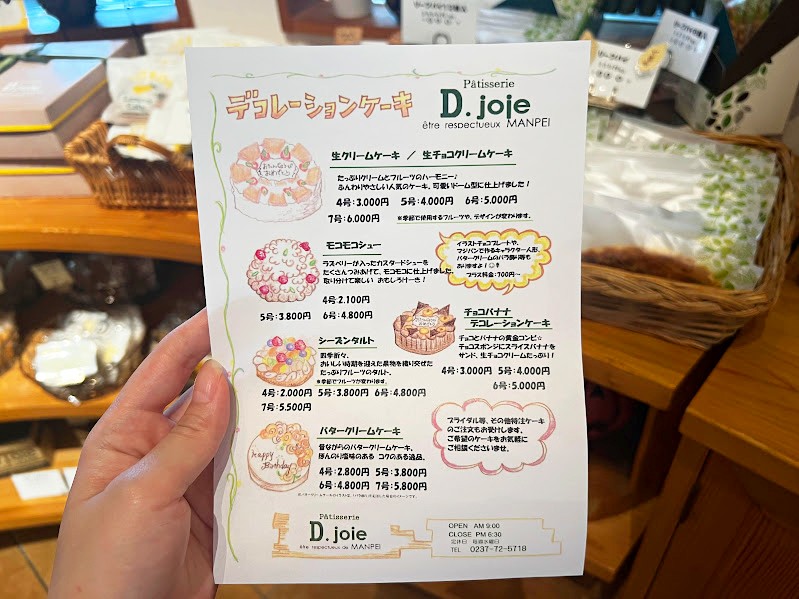 デコレーションケーキ
Pâtisserie
D.joie
être respectueux MANPEI
生クリームケーキ / 生チョコクリームケーキ
たっぷりクリームとフルーツのハーモニー♪
ふんわりやさしい人気のケーキ。可愛いドーム型に仕上げました!
4号:3.000円 5号:4.000円 6号:5.000円
7号:6.000円
※季節で使用するフルーツや、デザインが変わります。
モコモコシュー
ラズベリーが入ったカスタードシューを
たくさんつみあげて、モコモコに仕上げました。
取り分けて楽しい おもしろけーき!
4号:2.100円
5号:3.800円 6号:4.800円
イラストチョコプレートや、
マジパンで作るキャラクター人形、
バタークリームのバラ飾り等も
ありますよ!
プラス料金:700円~
チョコバナナ
デコレーションケーキ
チョコとバナナの黄金コンビ☆
チョコスポンジにスライスバナナを
サンド、生チョコクリームたっぷり!
4号:3.000円 5号:4.000円
6号:5.000円
シーズンタルト
四季折々、
おいしい時期を迎えた果物を織り交ぜた
たっぷりフルーツのタルト。
※季節でフルーツが変わります。
4号:2.000円 5号:3.800円 6号:4.800円
7号:5.500円
バタークリームケーキ
昔ながらのバタークリームケーキ。
ほんのり塩味のある コクのある逸品。
4号:2.800円 5号:3.800円
6号:4.800円 7号:5.800円
Happy
Birthday
ブライダル等、その他特注ケーキ
のご注文もお受けします。
ご希望のケーキをお気軽に
ご相談くださいませ。
Pâtisserie
D.joie
être respectueux de MANPEI
OPEN AM 9:00
CLOSE PM 6:30
定休日 毎週水曜日
TEL 0237-72-5718